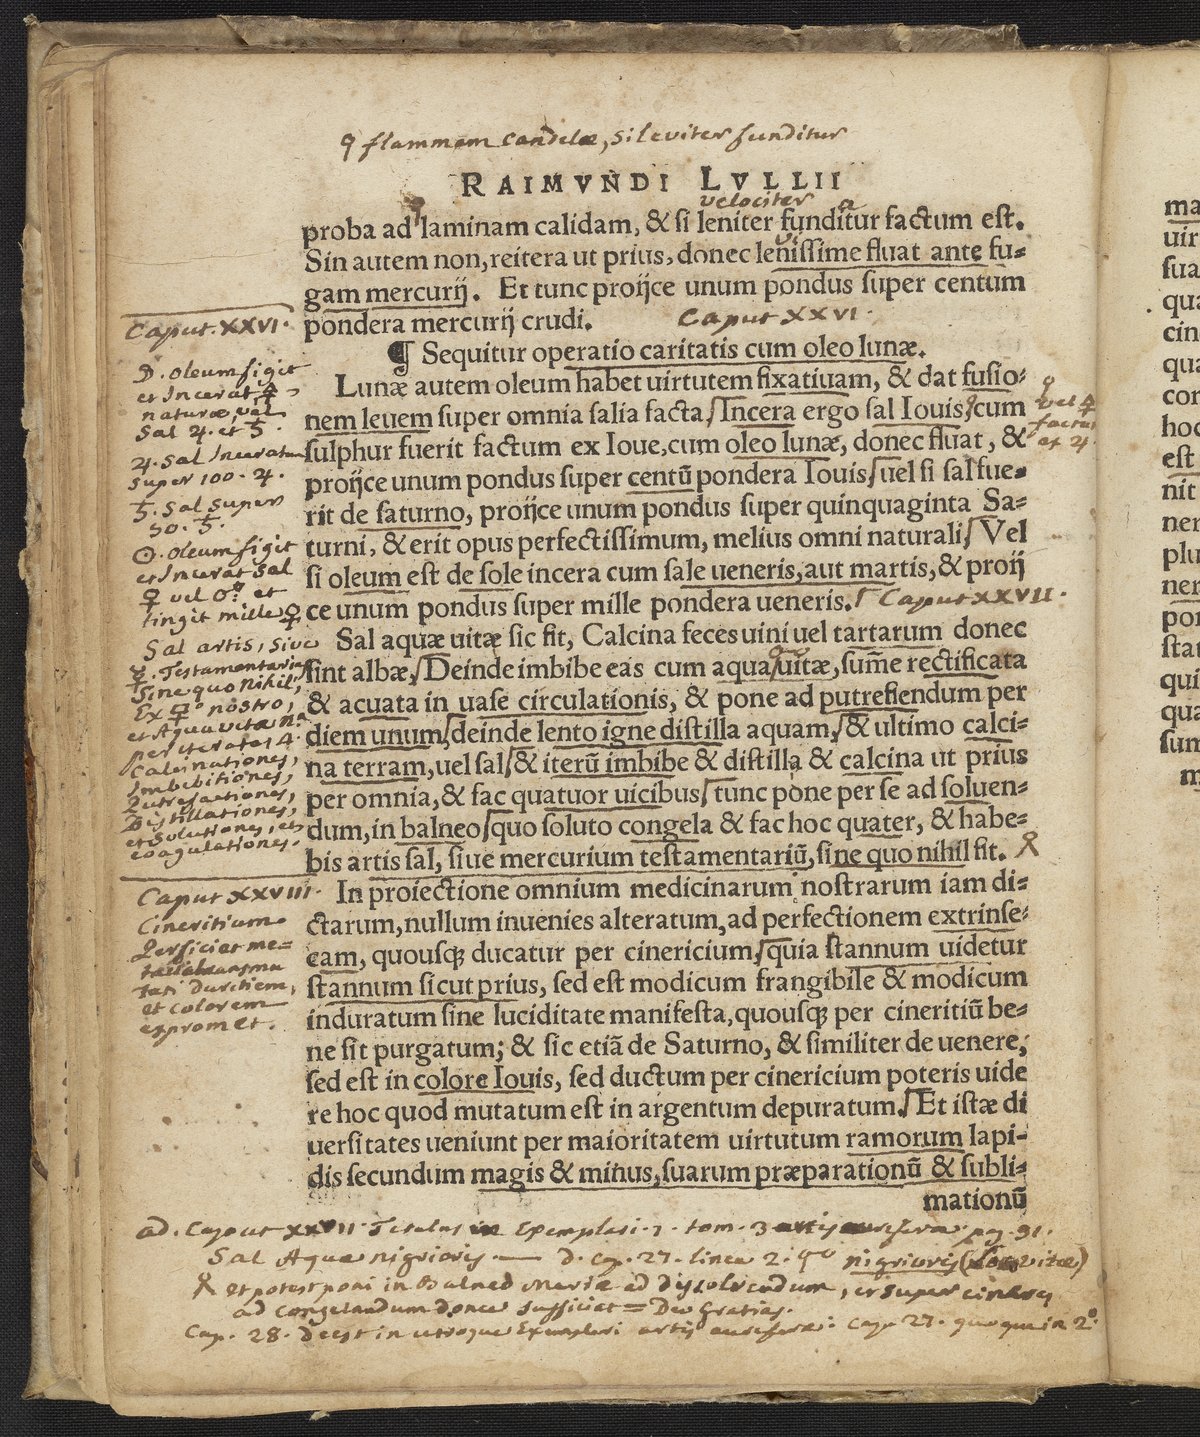 flammam candelæ, si leviter funditur
RAIMVNDI LVLLII
velociter
proba ad laminam calidam, & si leniter funditur factum est.
Sin autem non, reitera ut prius, donec leniſſime fluat ante fu=
gam mercurij. Et tunc proijce unum pondus ſuper centum
pondera mercurij crudi. Caput XXVI.
¶ Sequitur operatio caritatis cum oleo lunæ.
Lunæ autem oleum habet uirtutem fixatiuam, & dat fuſio=
nem leuem ſuper omnia ſalia facta. Incera ergo ſal Iouis, cum
ſulphur fuerit factum ex Ioue, cum oleo lunæ, donec fluat, &
proijce unum pondus ſuper centū pondera Iouis, uel ſi ſal fue=
rit de ſaturno, proijce unum pondus ſuper quinquaginta Sa=
turni, & erit opus perfectiſſimum, melius omni naturali. Vel
ſi oleum est de ſole incera cum ſale ueneris, aut martis, & proij
ce unum pondus ſuper mille pondera ueneris. Caput XXVII.
Sal aquæ uitæ ſic fit, Calcina feces uini uel tartarum donec
ſint albæ, Deinde imbibe eas cum aqua uitæ, ſum̄e rectificata
& acuata in uaſe circulationis, & pone ad putrefiendum per
diem unum, deinde lento igne diſtilla aquam, & ultimo calci=
na terram, uel ſal, & iterū imbibe & diſtilla & calcina ut prius
per omnia, & fac quatuor uicibus, tunc pone per ſe ad ſoluen=
dum, in balneo, quo ſoluto congela & fac hoc quater, & habe=
bis artis ſal, ſiue mercurium teſtamentariū, ſine quo nihil fit.
In proiectione omnium medicinarum noſtrarum iam di=
ctarum, nullum inuenies alteratum, ad perfectionem extrinſe=
cam, quouſq; ducatur per cinericium, quia ſtannum uidetur
ſtannum ſicut prius, ſed est modicum frangibile & modicum
induratum ſine luciditate manifeſta, quouſq; per cineritiū be=
ne ſit purgatum; & ſic etiā de Saturno, & ſimiliter de uenere,
ſed est in colore Iouis, ſed ductum per cinericium poteris uide
re hoc quod mutatum est in argentum depuratum. Et iſtæ di
uerſitates ueniunt per maioritatem uirtutum ramorum lapi=
dis ſecundum magis & minus, ſuarum præparationū & ſubli=
mationū
Caput. XXVI.
☽. oleum figit
et Incerat
naturæ, vel
Sal ♃. et ♄.
♃. Sal Inceratum
super 100. ♃.
♄. Sal super
50. ♄.
☉. oleum figit
et Incerat Sal
♀ vel et
tingit mille ♀
Sal artis, sive
☿. Testamentarius
Sine quo Nihil,
Ex nostro,
et Aqua vitæ
per iteratas 4.
calcinationes,
Imbibitiones,
Putrefactiones,
Distillationes,
et Solutiones, et
coagulationes.
Caput XXVIII.
Cineritium
Perficiet me=
talla
duritiem,
et colorem
expromet.
factus
et ♃.
ad. Caput XXVII. Titulus in Exemplari. 1. tom. 3 artis auriferæ pag. 91.
Sal Aquæ nigrioris. — D. Cap. 27. linea 2. nigrioris vitæ)
et potest poni in Balneo Mariæ ad dissolvendum, et super cineres
ad congelandum donec sufficiat = Deo Gratias.
Cap. 28. Deest in utroque Exemplari artis auriferæ: Cap. 27. quoque in 2°.